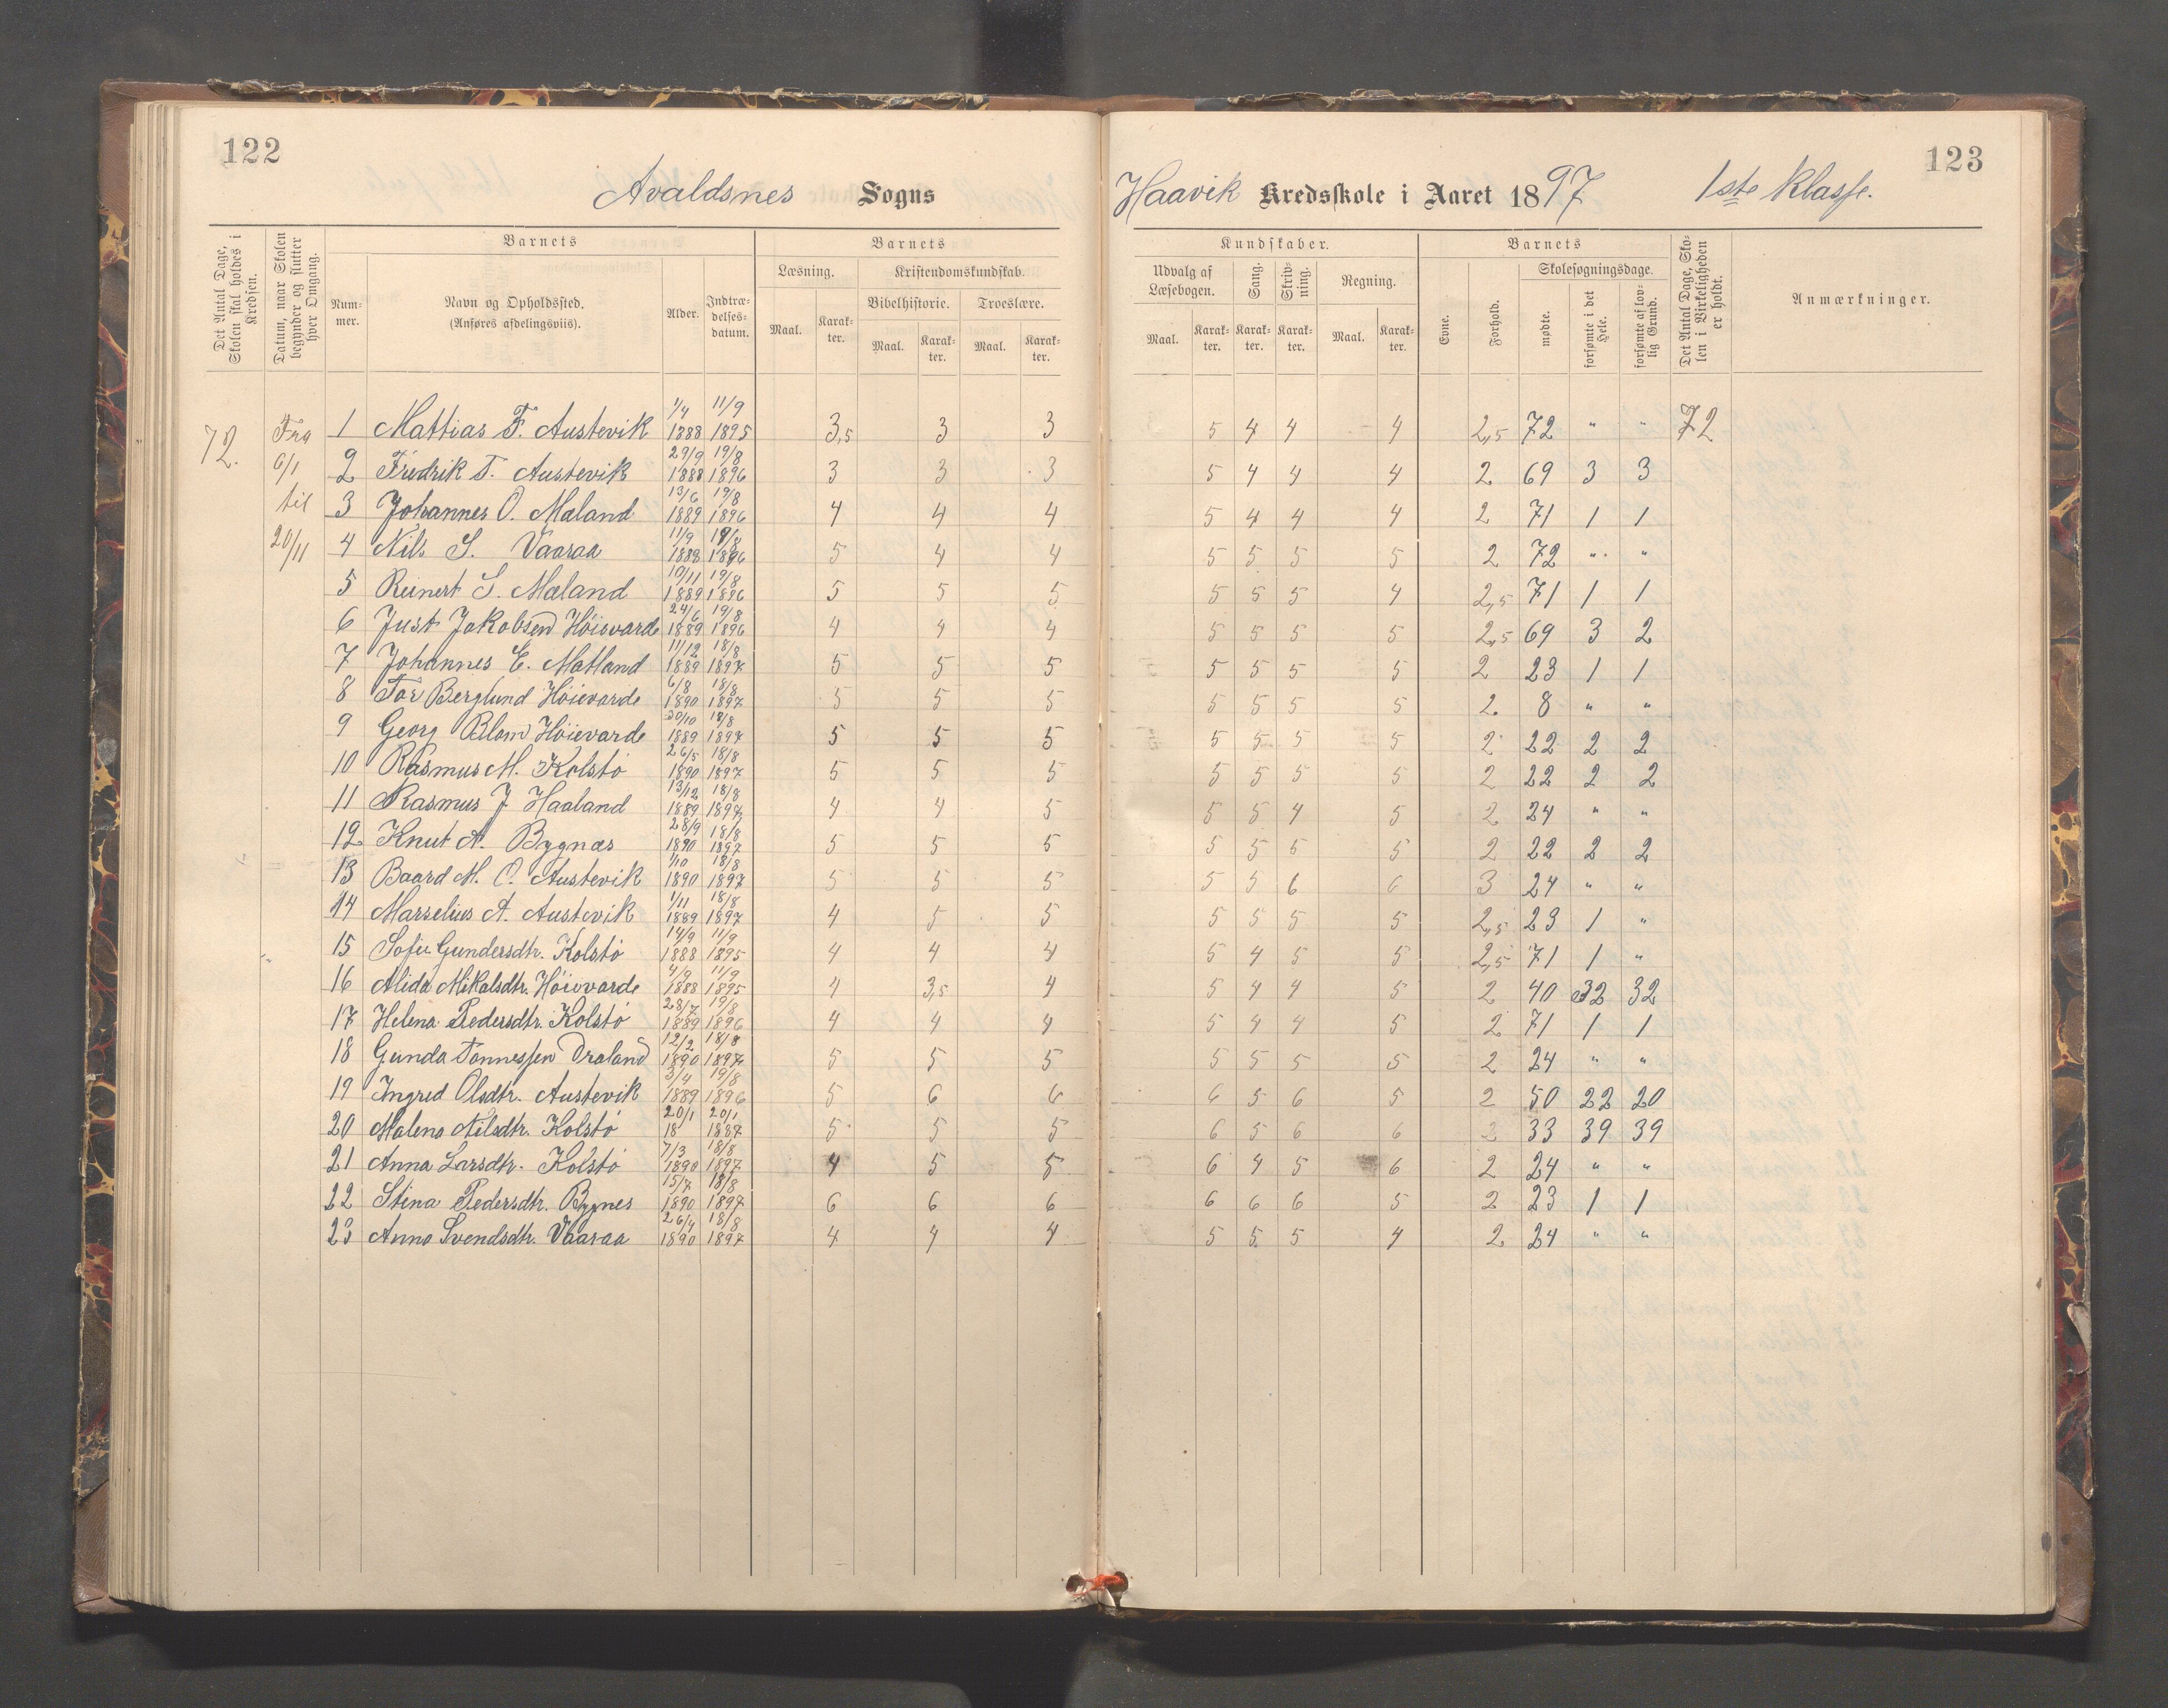 122
123
Avaldsnes Sogns
Haavik Kredsskole i Aaret 1897 1ste Klasse.
Det Antal Dage, Skolen skal holdes i Kredsen.
Datum, naar Skolen begynder og slutter hver Omgang.
Barnets
Barnets
Kundskaber.
Barnets
Det Antal Dage, Skolen i Virkeligheden er holdt.
Anmærkninger.
Nummer.
Navn og Opholdssted.
(Anføres afdelingsviis).
Alder.
Indtrædelsesdatum.
Læsning.
Kristendomskundskab.
Bibelhistorie.
Troeslære.
Maal.
Karakter.
Maal.
Karakter.
Maal.
Karakter.
Udvalg af Læsebogen.
Sang.
Skrivning.
Regning.
Maal.
Karakter.
Karakter.
Karakter.
Maal.
Karakter.
Evne.
Forhold.
Skolesøgningsdage.
mødte.
forsømte i det Hele.
forsømte af lovlig Grund.
72.
Fra
6/1
til
20/11
1 Mattias F. Austevik 1/4 1888 11/9 1895 3,5 3 3 5 4 4 4 2,5 72 " " 72
2 Fredrik T. Austevik 29/9 1888 19/8 1896 3 3 3 5 4 4 4 2 69 3 3
3 Johannes O. Maland 13/6 1889 19/8 1896 4 4 4 5 4 4 4 2 71 1 1
4 Nils S. Vaaraa 11/9 1888 19/8 1896 5 4 4 5 5 5 5 2 72 " "
5 Reinert S. Maland 10/11 1889 19/8 1896 5 5 5 5 5 5 4 2,5 71 1 1
6 Just Jakobsen Höievarde 24/6 1889 19/8 1896 4 4 4 5 5 5 5 2,5 69 3 2
7 Johannes E. Matland 11/12 1889 18/8 1897 5 5 5 5 5 5 5 2 23 1 1
8 Tor Berglund Höievarde 6/8 1890 18/8 1897 5 5 5 5 5 5 5 2 8 " "
9 Georg Blom Höievarde 30/10 1889 18/8 1897 5 5 5 5 5 5 5 2 22 2 2
10 Rasmus M. Kolstö 26/5 1890 18/8 1897 5 5 5 5 5 5 5 2 22 2 2
11 Rasmus J Haaland 13/12 1889 18/8 1897 4 4 5 5 5 4 5 2 24 " "
12 Knut A. Bygnæs 28/9 1890 18/8 1897 5 5 5 5 5 5 5 2 22 2 2
13 Baard M. O. Austevik 1/10 1890 18/8 1897 5 5 5 5 5 6 6 3 24 " "
14 Marselius A. Austevik 1/11 1889 18/8 1897 4 5 5 5 5 5 5 2,5 23 1 "
15 Sofie Gundersdtr. Kolstö 14/9 1888 11/9 1895 4 4 4 5 4 5 5 2,5 71 1 "
16 Alida Mikalsdtr. Höievarde 4/9 1888 11/9 1895 4 3,5 4 5 4 4 5 2 40 32 32
17 Helena Pedersdtr. Kolstö 28/7 1889 19/8 1896 4 4 4 5 4 4 5 2 71 1 1
18 Gunda Tønnessen Draland 12/2 1890 18/8 1897 5 5 5 5 5 5 5 2 24 " "
19 Ingred Olsdtr. Austevik 3/4 1889 19/8 1896 5 6 6 6 5 6 5 2 50 22 20
20 Malena Nilsdtr. Kolstö 20/1 18 20/1 1887 5 5 5 6 5 6 6 2 33 39 39
21 Anna Larsdtr. Kolstö 7/3 1890 18/8 1897 4 5 5 6 4 5 6 2 24 " "
22 Stina Pedersdtr. Bygnes 15/7 1890 18/8 1897 6 6 6 6 6 6 5 2 23 1 1
23 Anna Svendsdtr. Vaaraa 26/4 1890 18/8 1897 4 4 4 5 5 5 4 2 24 " "